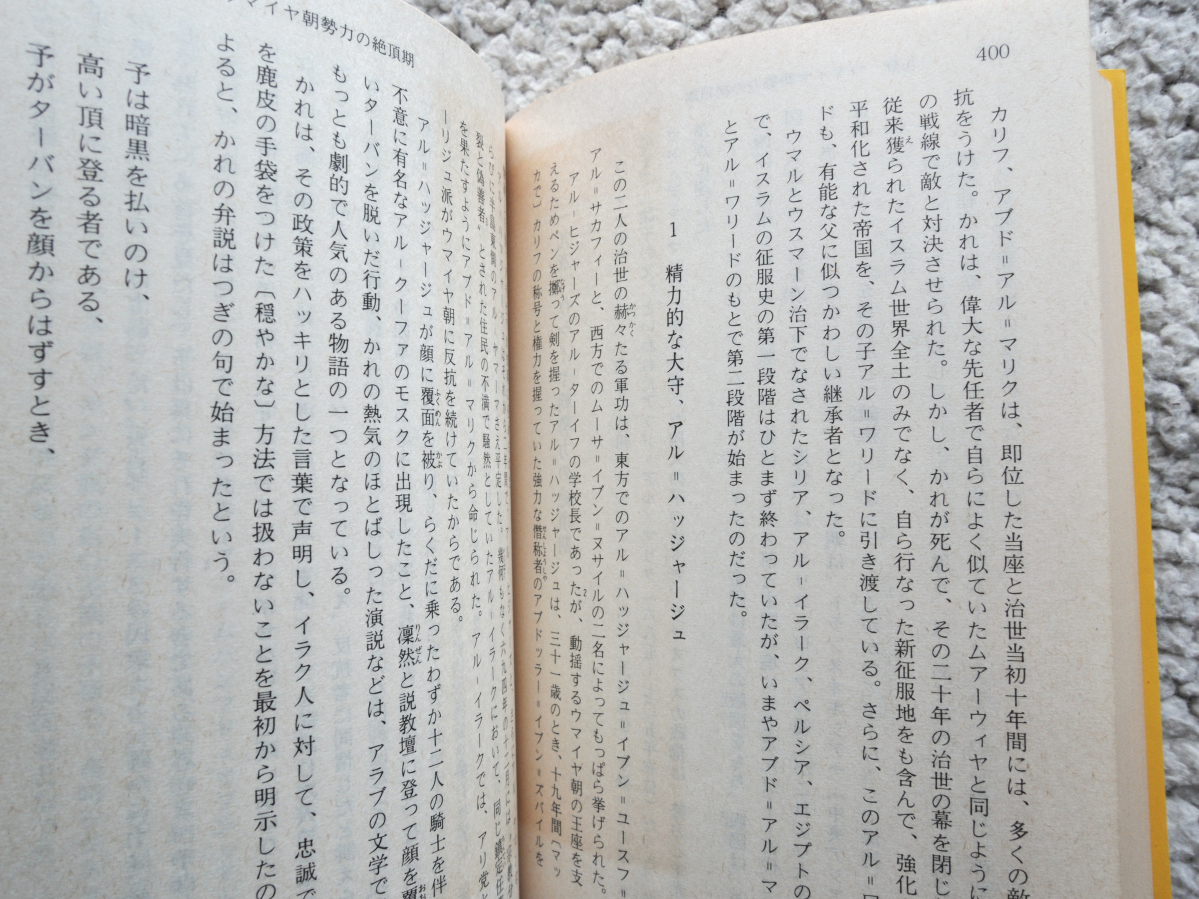 400
カリフ、アブド＝アル＝マリクは、即位した当座と治世当初十年間には、多くの敵
抗をうけた。かれは、偉大な先任者で自らによく似ていたムアーウィヤと同じように
の戦線で敵と対決させられた。しかし、かれが死んで、その二十年の治世の幕を閉じ
従来獲られたイスラム世界全土のみでなく、自ら行なった新征服地をも含んで、強化
平和化された帝国を、その子アル＝ワリードに引き渡している。さらに、このアル＝ワ
ドも、有能な父に似つかわしい継承者となった。
ウマルとウスマーン治下でなされたシリア、アル＝イラーク、ペルシア、エジプトの
で、イスラムの征服史の第一段階はひとまず終わっていたが、いまやアブド＝アル＝マ
とアル＝ワリードのもとで第二段階が始まったのだった。
1 精力的な大守、アル＝ハッジャージュ
この二人の治世の赫々たる軍功は、東方でのアル＝ハッジャージュ＝イブン＝ユースフ＝
アル＝サカフィーと、西方でのムーサ＝イブン＝ヌサイルの二名によってもっぱら挙げられた。
アル＝ヒジャーズのアル＝ターイフの学校長であったが、動揺するウマイヤ朝の王座を支
えるためペンを擲って剣を握ったアル＝ハッジャージュは、三十一歳のとき、十九年間〔マッ
カで〕カリフの称号と権力を握っていた強力な僭称者のアブドッラー＝イブン＝ズバイルを
マイヤ朝勢力の絶頂期
裂と偽善者」とされた住民の不満で騒然としていたアル＝イラークにおいて、同じ
を果たすようにアブド＝アル＝マリクから命じられた。アル＝イラークでは、アリ党
ーリジュ派がウマイヤ朝に反抗を続けていたからである。
アル＝ハッジャージュが顔に覆面を被り、らくだに乗ったわずか十二人の騎士を伴
不意に有名なアル＝クーファのモスクに出現したこと、凜然と説教壇に登って顔を覆
いターバンを脱いだ行動、かれの熱気のほとばしった演説などは、アラブの文学で
もっとも劇的で人気のある物語の一つとなっている。
かれは、その政策をハッキリとした言葉で声明し、イラク人に対して、忠誠で
を鹿皮の手袋をつけた〔穏やかな〕方法では扱わないことを最初から明示したの
よると、かれの弁説はつぎの句で始まったという。
予は暗黒を払いのけ、
高い頂に登る者である、
予がターバンを顔からはずすとき、